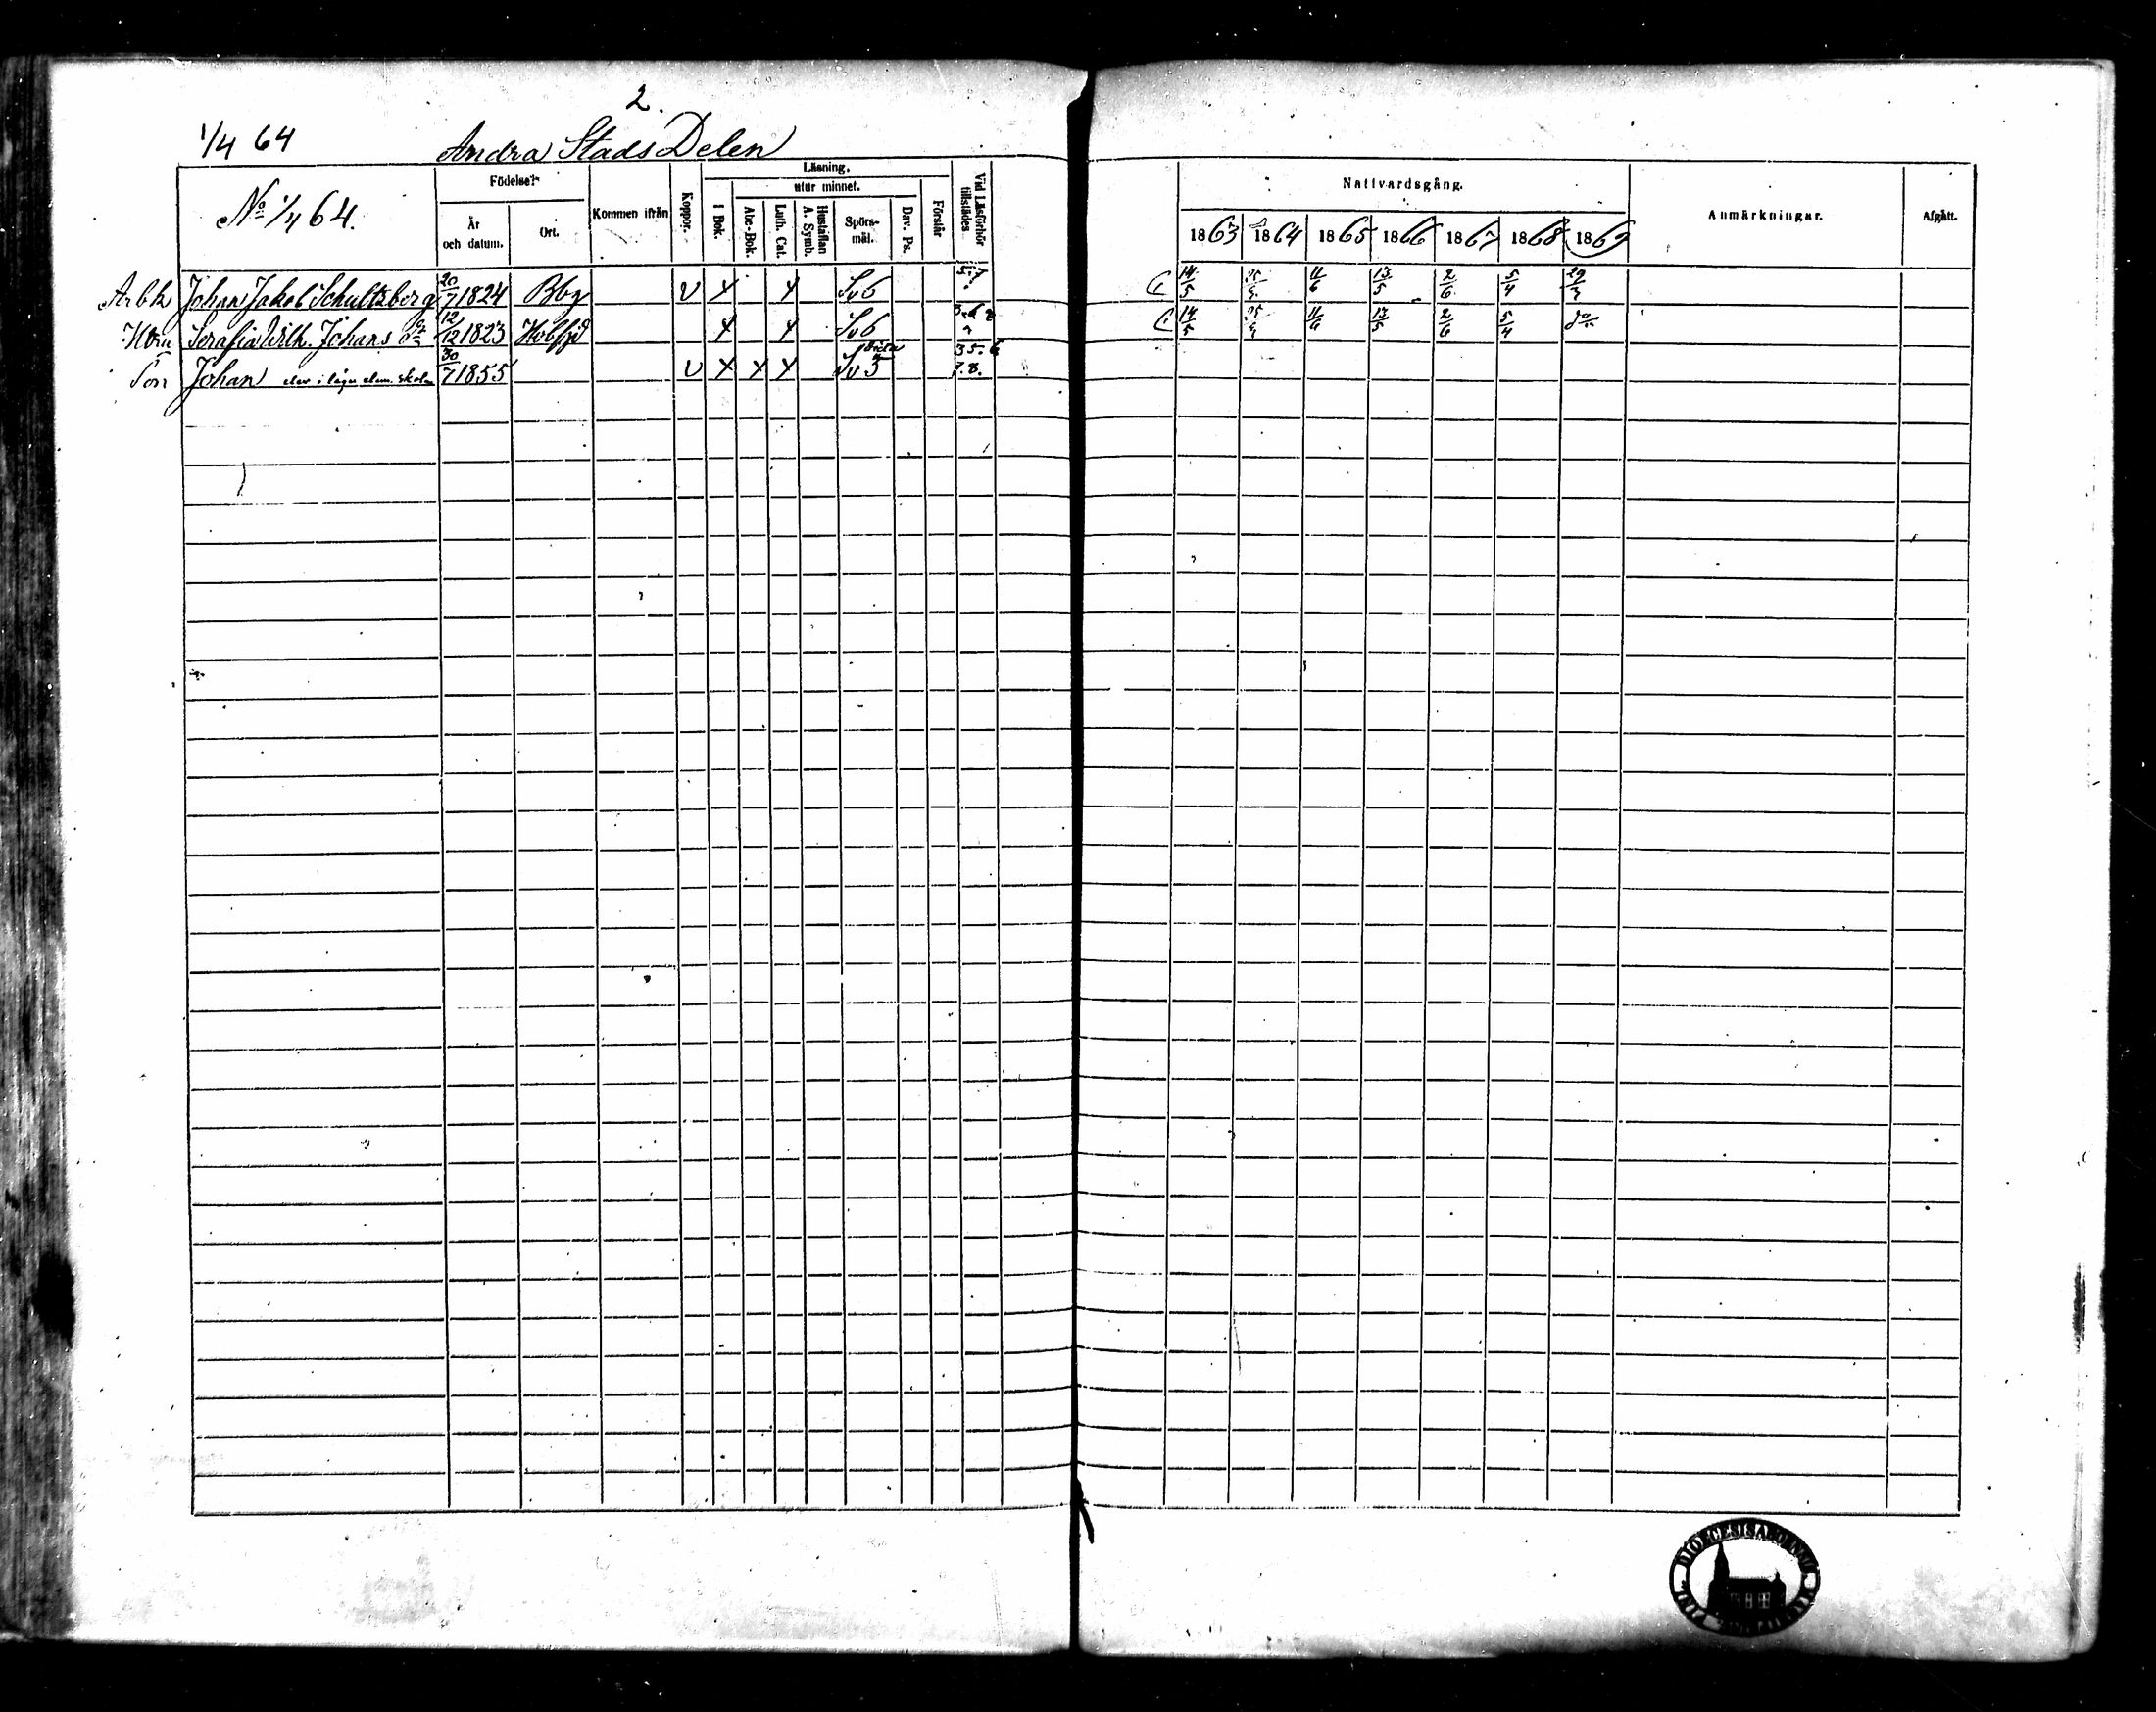 2.
1/4 64 Andra Stads Delen
No 1/4 64.
Födelse-
År och datum.
Ort.
Kommen ifrån
Koppor.
Läsning,
utur minnet.
I Bok.
Abc-Bok.
Luth. Cat.
Hustaflan A. Symb.
Spörsmål.
Dav. Ps.
Förstår
Vid Läsförhör tillstädes
Nattvardsgång.
1863 1864 1865 1866 1867 1868 1869
Anmärkningar.
Afgått.
Johan Jakob Schultzberg 20/7 1824 Bbg v x x Sv 6 14/5 11/6 13/5 2/6 5/4
Serafia Wilh. Johans dr 12/12 1823 x x Sv 6 14/5 11/6 13/5 2/6 5/4
Son Johan elev i lägre elem. skolan 30/7 1855 v x x x Sv 5 3 5. 6 7. 8.